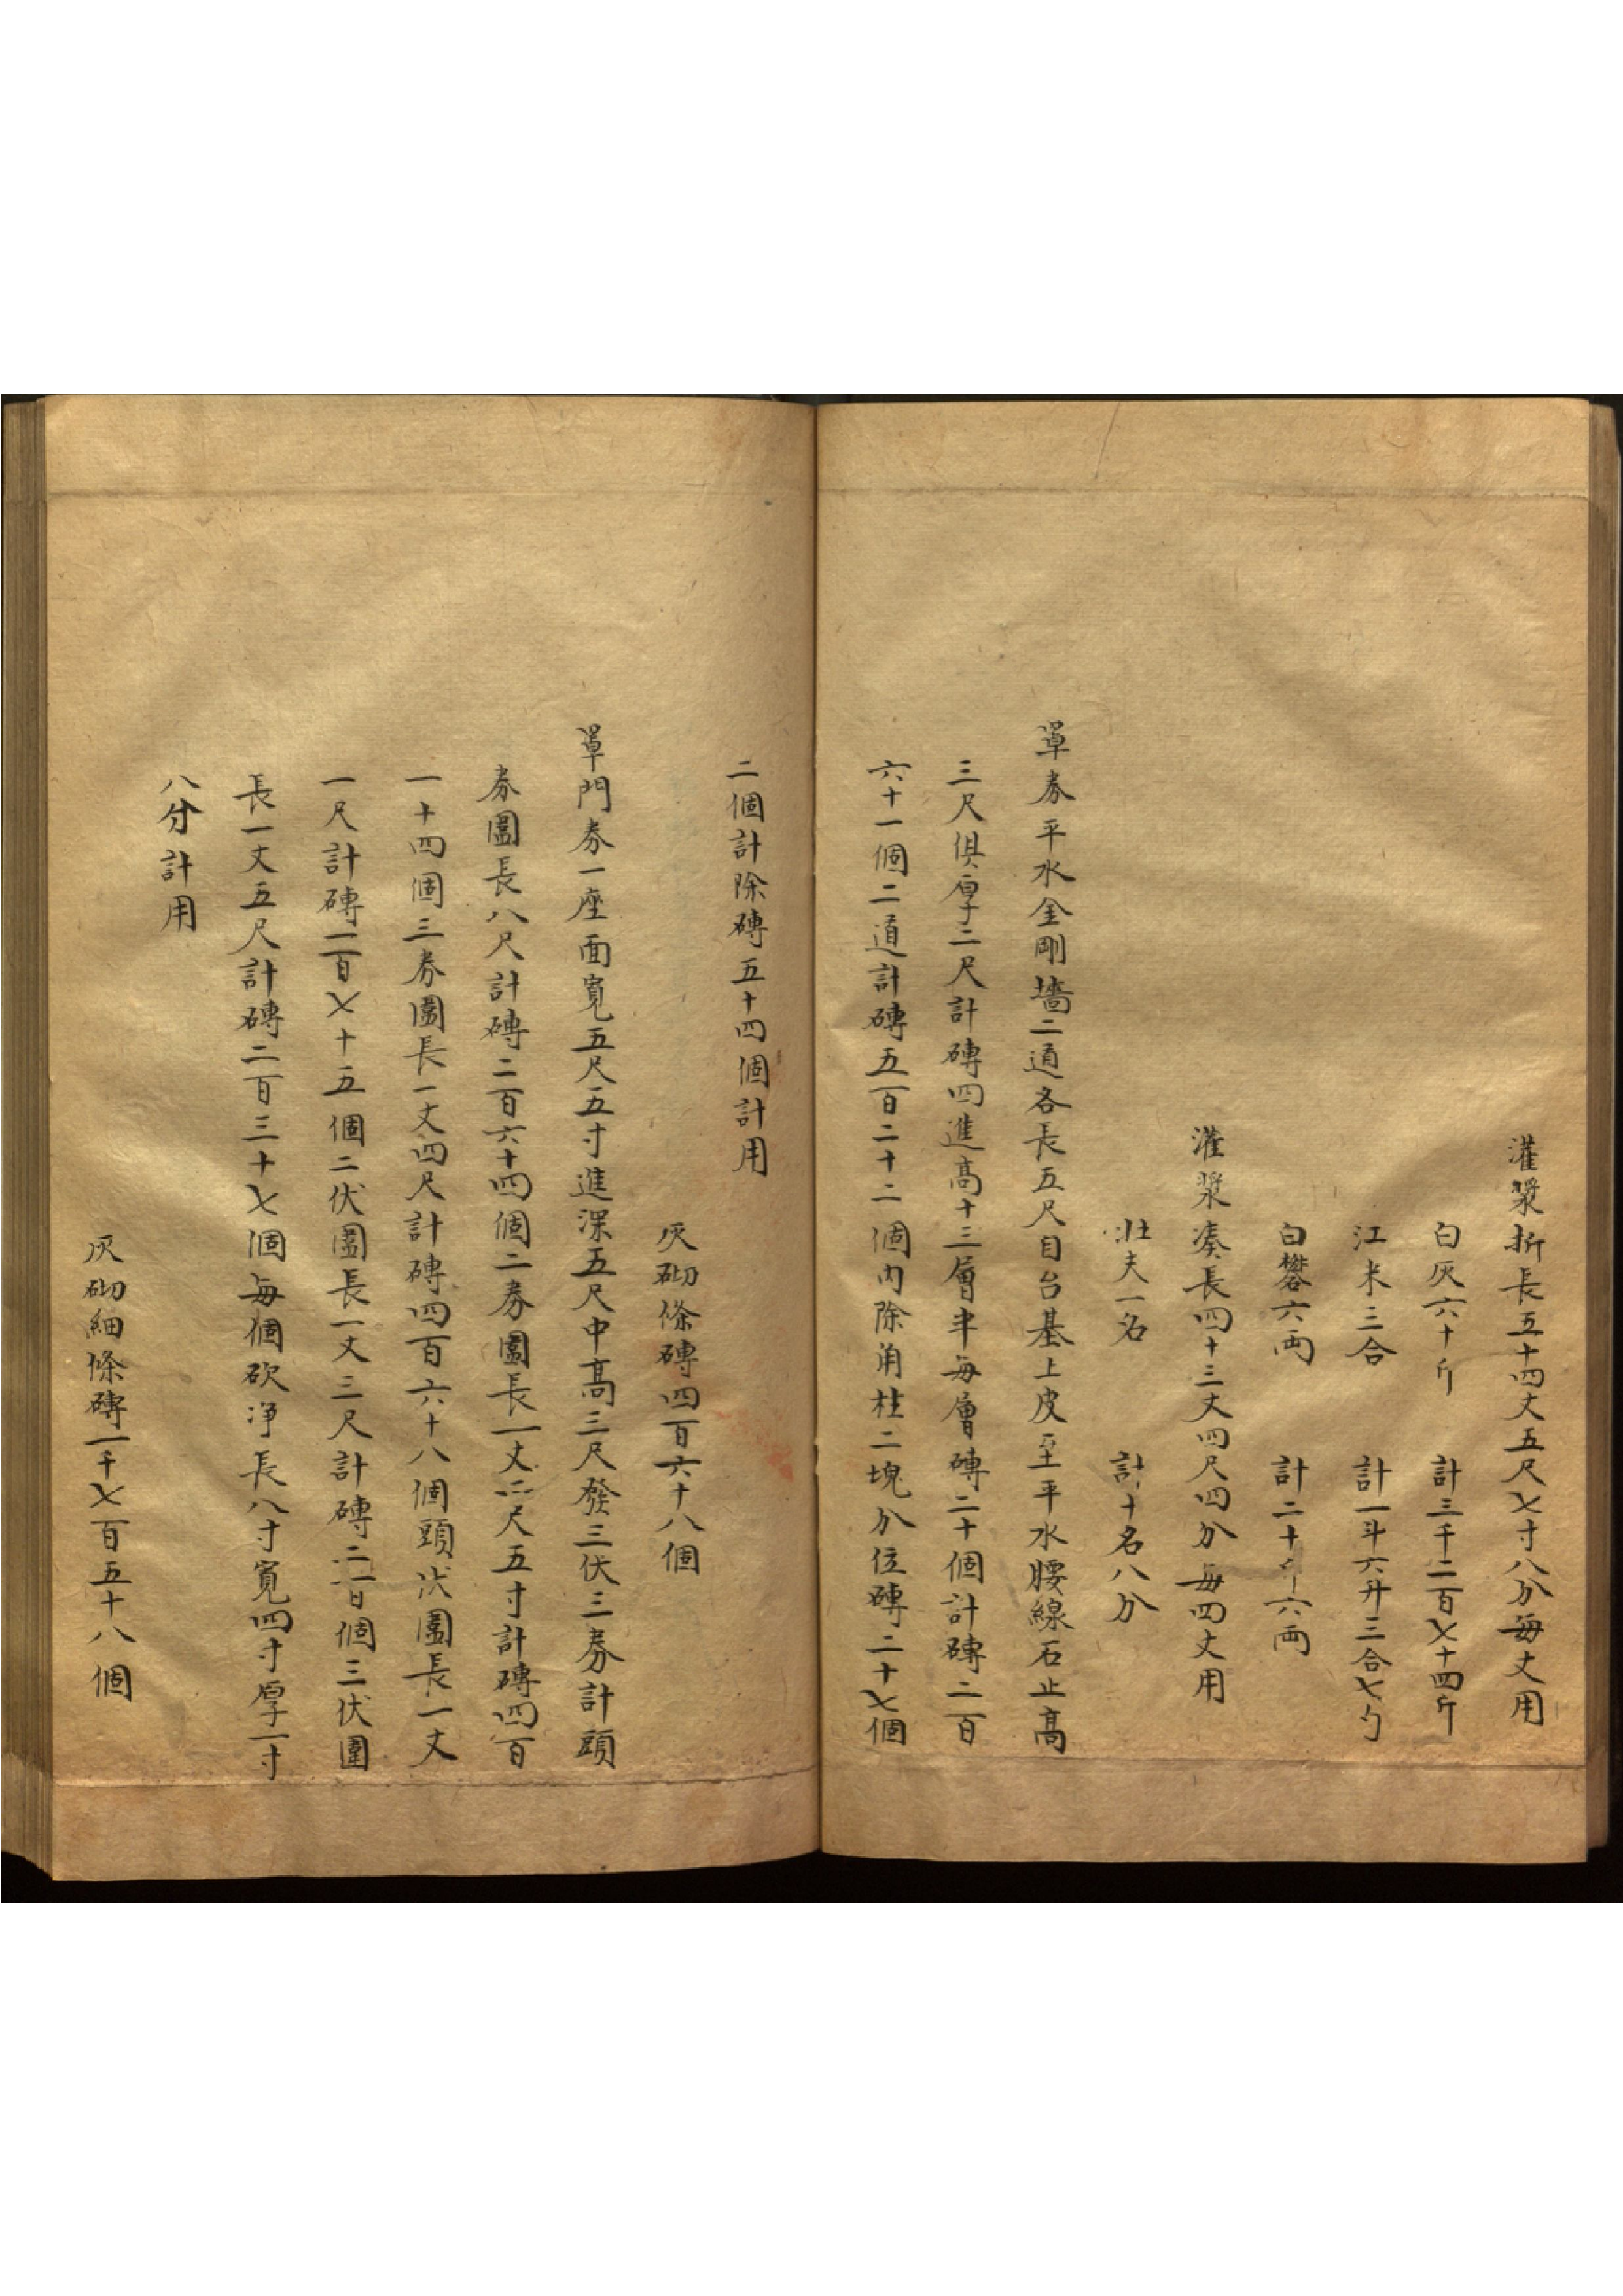 灌漿折長五十四丈五尺七寸八分每丈用
白灰六十斤　計三千二百七十四斤
江米三合　計一斗六升三合七勺
白礬六両　計二十斤六両
灌漿湊長四十三丈四尺四分每四丈用
壯夫一名　計十名八分
單券平水金剛墻二道各長五尺自台基上皮至平水腰線石止高
三尺俱厚二尺計磚四進高十三層半每層磚二十個計磚二百
六十一個二道計磚五百二十二個內除角柱二塊分位磚二十七個
二個計除磚五十四個計用
灰砌條磚四百六十八個
單門券一座面寬五尺五寸進深五尺中高三尺發三伏三券計頭
券圍長八尺計磚二百六十四個二券圍長一丈二尺五寸計磚四百
一十四個三券圍長一丈四尺計磚四百六十八個頭伏圍長一丈
一尺計磚一百七十五個二伏圍長一丈三尺計磚二百個三伏圍
長一丈五尺計磚二百三十七個每個砍净長八寸寬四寸厚一寸
八分計用
灰砌細條磚一千七百五十八個